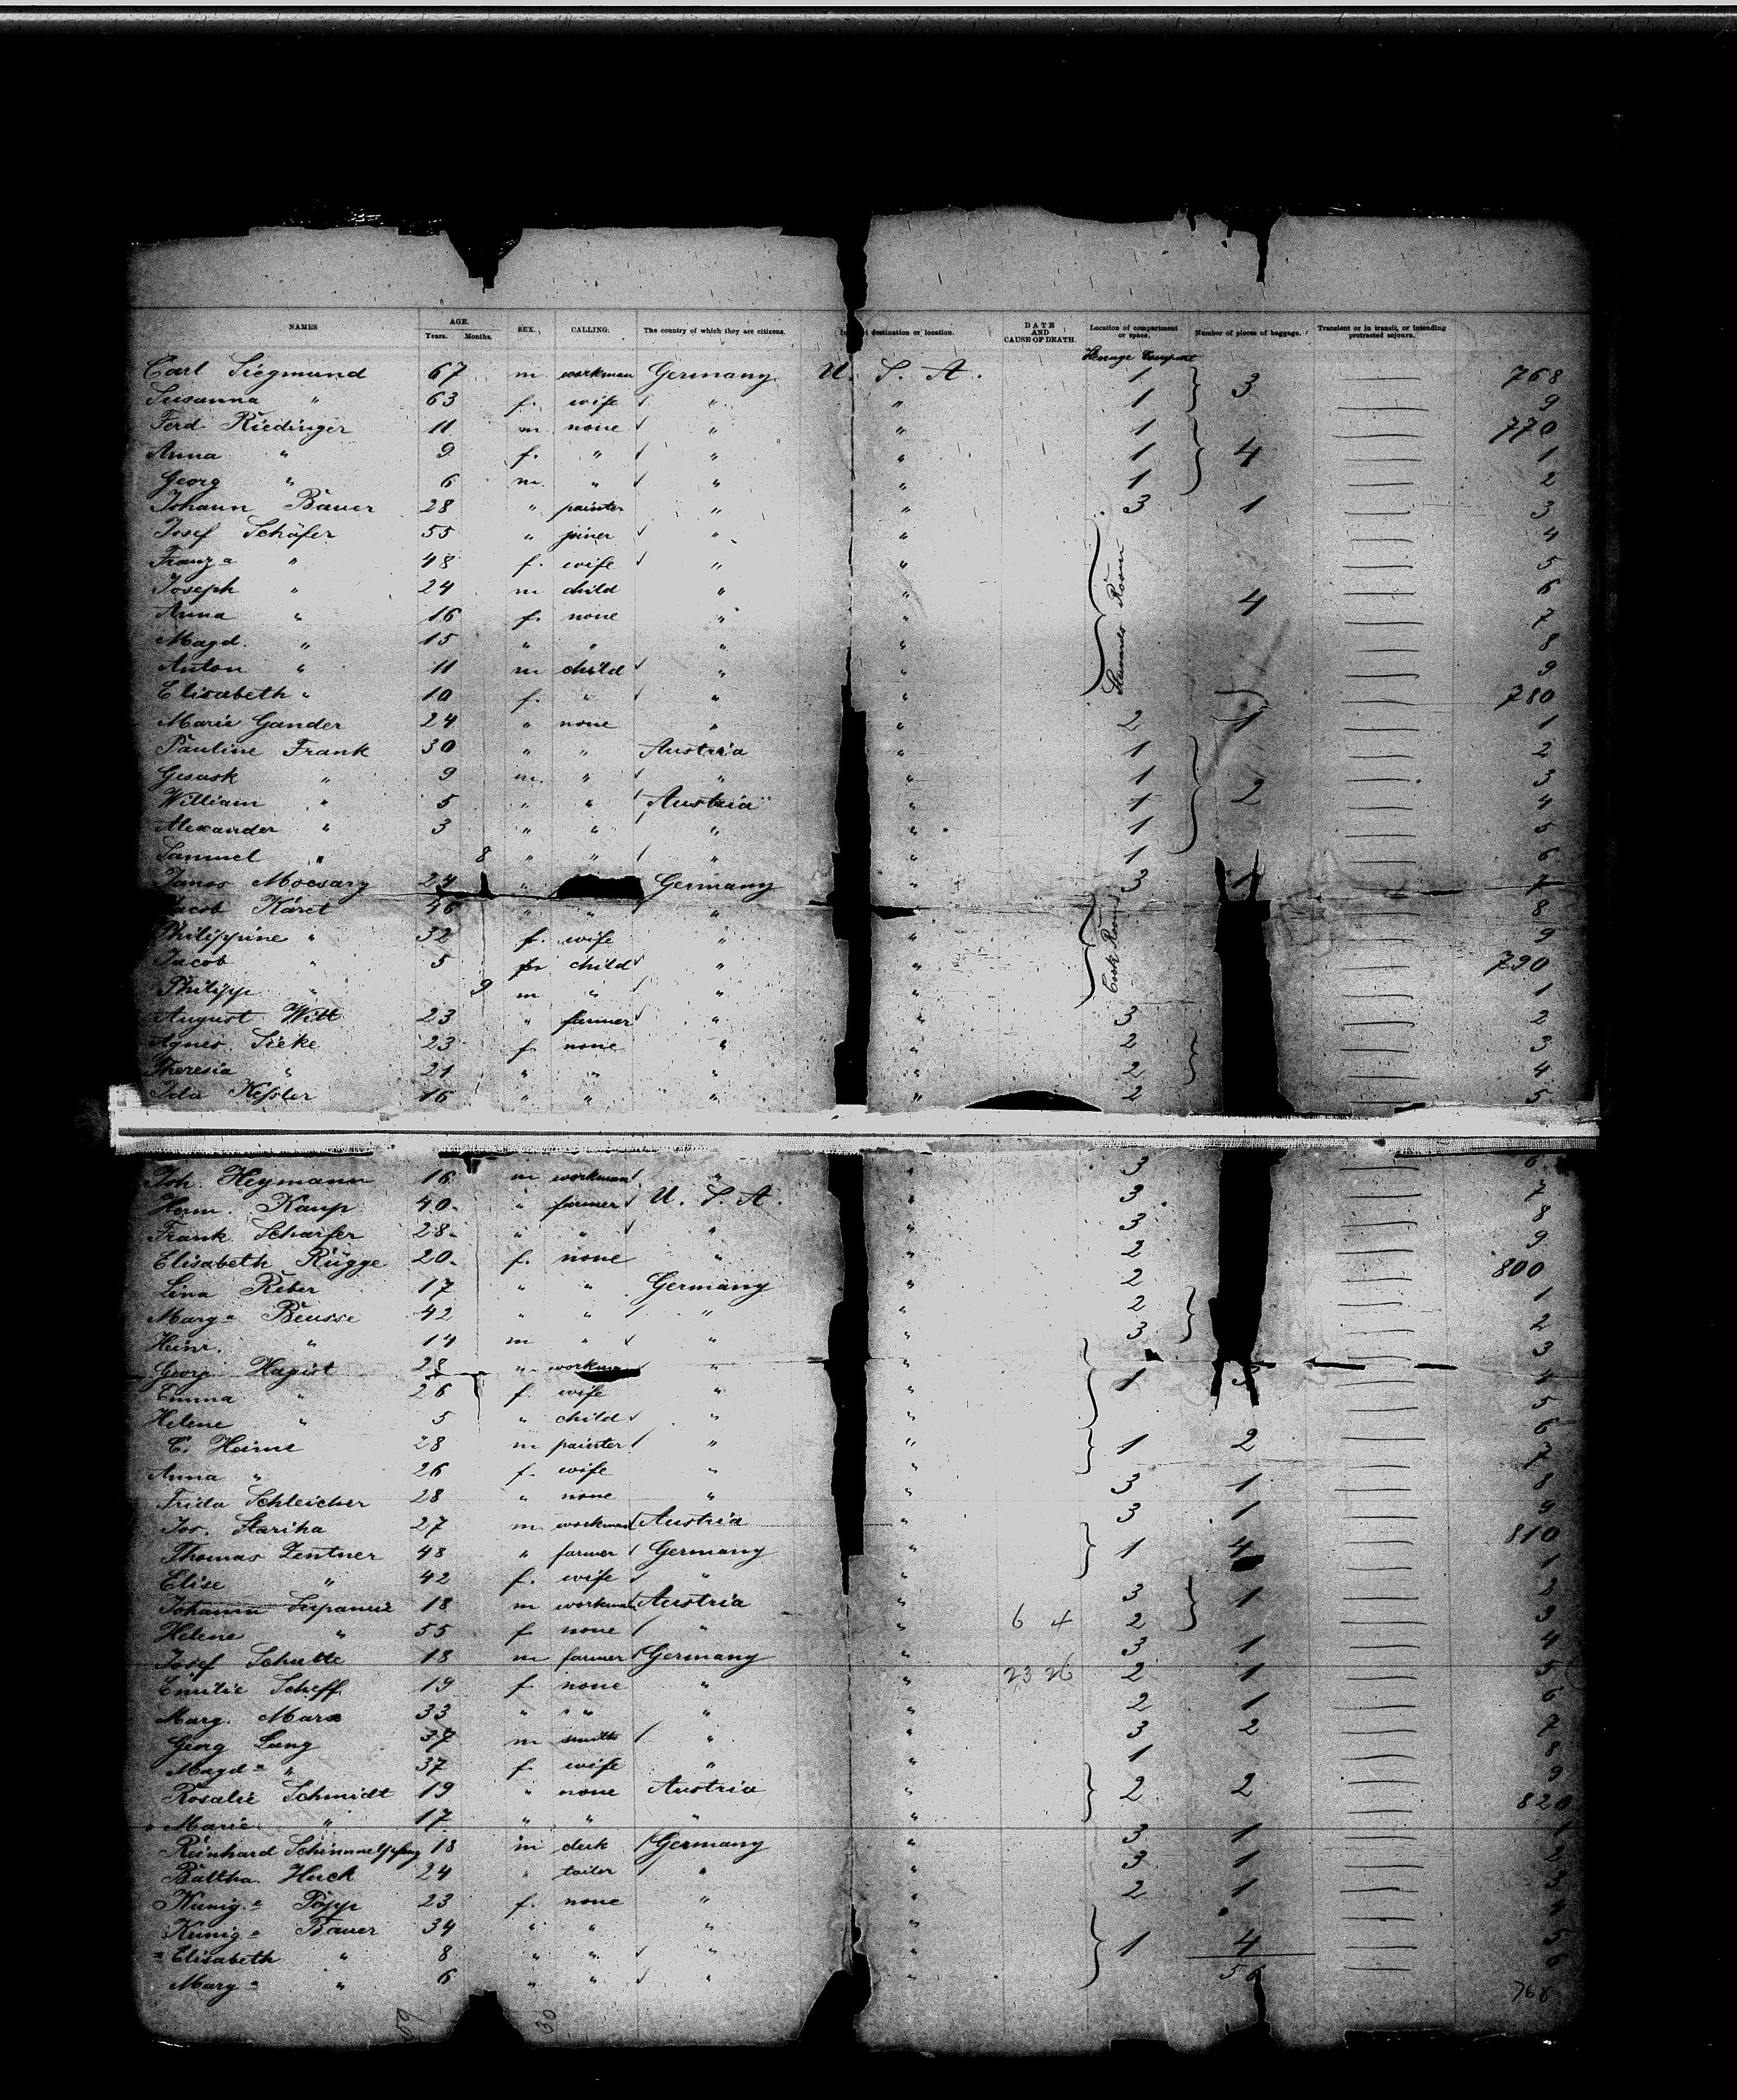 NAMES AGE. Years. Months. SEX. CALLING. The country of which they are citizens. destination or location. DATE AND CAUSE OF DEATH. Location of compartment or space. Number of pieces of baggage. Transient or in transit, or intending protracted sojourn.
Steerage Compart
Carl Siegmund 67 m. workman Germany U. S. A. 1 3 768
Susanna " 63 f. wife " " 1 9
Ferd. Riedinger 11 m none " " 1 770
Anna " 9 f. " " " 1 4 1
Georg " 6 m. " " " 1 2
Johann Bauer 28 " painter " " 3 1 3
Josef Schäfer 55 " joiner " " 4
Franz a " 48 f. wife " " 5
Joseph " 24 m child " " 6
Anna " 16 f. none " " 4 7
Magd. " 15 " " " " 8
Anton " 11 m child " " 9
Elisabeth " 10 f. " " " Room 780
Marie Gander 24 " none " " 2 1 1
Pauline Frank 30 " " Austria " 1 2
" 9 m. " " " 1 3
William " 5 " " Austria " 1 2 4
Alexander " 3 " " " " 1 5
Samuel " 8 " " " " 1 6
Janos Mocsary 24 " Germany " 3 1 7
Jacob Karet 46 " " " " 8
Philippine " 32 f. wife " " 9
Jacob " 5 child " " Cook Room 790
Philipp " 9 m " " " 1
August Witt 23 " farmer " " 3 2
Agnes Sieke 23 f. none " " 2 3
Theresia " 21 " " " " 2 4
Ida Kessler 16 " " " " 2 5
Joh. Heymann 16 m workman " " 3 6
Herm. Kamp 40 " farmer U. S. A. " 3 7
Frank Scharfer 28 " " " " 3 8
Elisabeth Rügge 20 f. none " " 2 9
Lina Reber 17 " " Germany " 2 800
Marg a Beusse 42 " " " " 2 1
Heinr. " 14 m " " " 3 2
Georg Hagist 28 " workman " " 3
Emma " 26 f. wife " " 1 3 4
Helene " 5 " child " " 5
C. Heine 28 m painter " " 1 2 6
Anna " 26 f. wife " " 7
Frida Schleicher 28 " none " " 3 1 8
Jos. Stariha 27 m workman Austria " 3 1 9
Thomas Zentner 48 " farmer Germany " 1 4 810
Elise " 42 f. wife " " 1
Johann 18 m workman Austria " 3 1 2
Helene " 55 f none " " 6 4 2 3
Josef Schutte 18 m farmer Germany " 3 1 4
Emilie Scheff 19 f none " " 23 26 2 1 5
Marg. Marx 33 " " " " 2 1 6
Georg Lang 37 m smith " " 3 2 7
Magd a " 37 f. wife " " 1 8
Rosalie Schmidt 19 " none Austria " 2 2 9
Marie " 17 " " " " 820
Reinhard Schimmelpfeng 18 m clerk Germany " 3 1 1
Baltha. Huck 24 " tailor " " 3 1 2
Kunig. a Popp 23 f. none " " 2 1 3
Kunig. a Bauer 34 " " " " 4
Elisabeth " 8 " " " " 1 4 5
Marg a " 6 " " " " 56 6
59 30 768